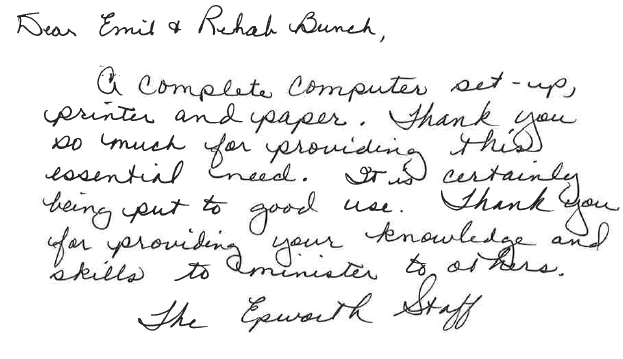 Dear Emil & Rehab Bunch,
A complete computer set-up,
printer and paper. Thank you
so much for providing this
essential need. It is certainly
being put to good use. Thank you
for providing your knowledge and
skills to minister to others.
The Epworth Staff